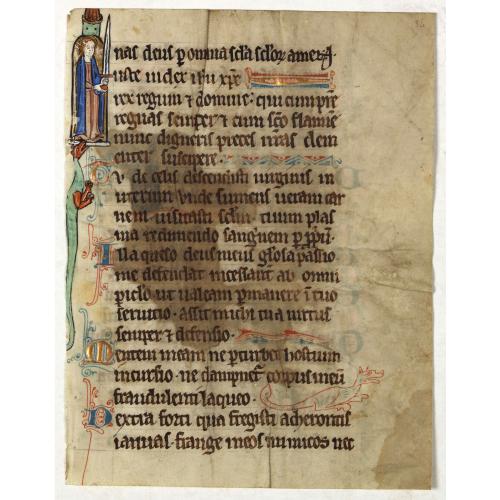 nas deus p omnia scła scłor amen.
uste iudex ihu xpe
rex regum ⁊ domine: qui cum pre
regnas semper ⁊ cum sco flamine
nunc digneris preces nras clem
enter suscipere.
u de celis descendisti uirginis in
uterum unde sumens ueram car
nem uisitasti sclm tuum plas
ma redimendo sanguinem p pprium.
Tua queso deus meus gliosa passio
me defendat incessant ab omni
piclo ut ualeam permanere i tuo
seruitio. assit michi tua uirtus
semper ⁊ defensio.
Mentem meam ne perturbet hostium
incursio. ne dampnet corpus meu
fraudulenti laqueo.
Dextra forti qua fregisti acherontis
ianuas. frange meos inimicos nec